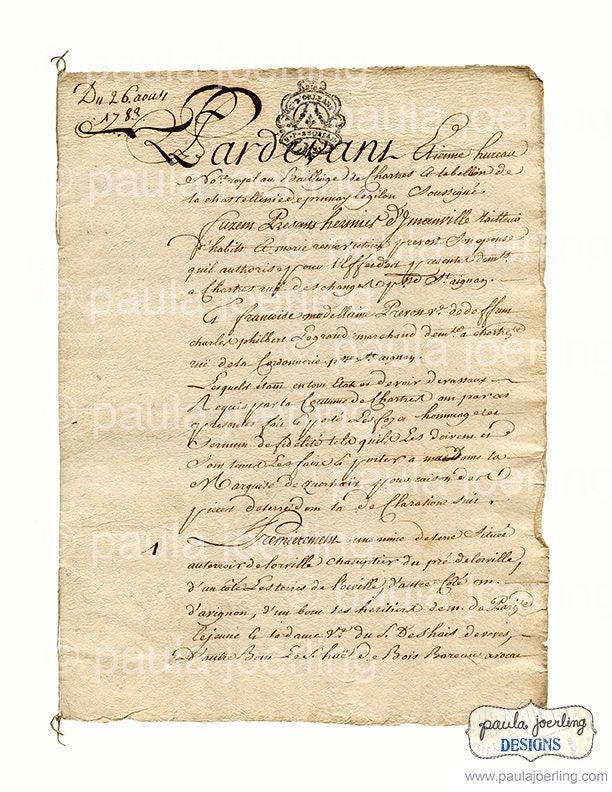 Du 26 aoust
1783
Pardevant Etienne hureau
No.re royal au Bailliage de Chartres & tabellion de
la chastellenie
Soussigné
furent Presens hermies d'ymonville tailleur
d'habits & marie prevost Son epouse
quil authorise pour l'Effet des presentes dem.t
a Chartres ruë des changes p.sse St. aignan.
Et francoise madellaine Prevost v.e de deffunt
charles philbert Legrand marchand dem.te a chartres
ruë de la Cordonnerie p.sse St. aignan.
Lesquels étant en tout Etat et devoir de vassaux
Requis par la Coutume de Chartres ont par ces
presentes fait & porté Les foy & hommages et
Serment de fidelité tels quils Les doivent et
Sont tenus Les faire & porter a madame la
Marquise de pour raison des
pieces de terre dont la de Claration Suit,
1 Premierement un mine de terre Située
au terroir de loinville champtier du pré de loinville
d'un côté Les terres de d'autre Coté m.
d'avignon, d'un bout les heritiers de m. de
Lejeune & la dame v.e du S.
D'autre Bout Le S. huë de Bois Bareau avocat
© paula joerling
paula joerling
DESIGNS
www.paulajoerling.com